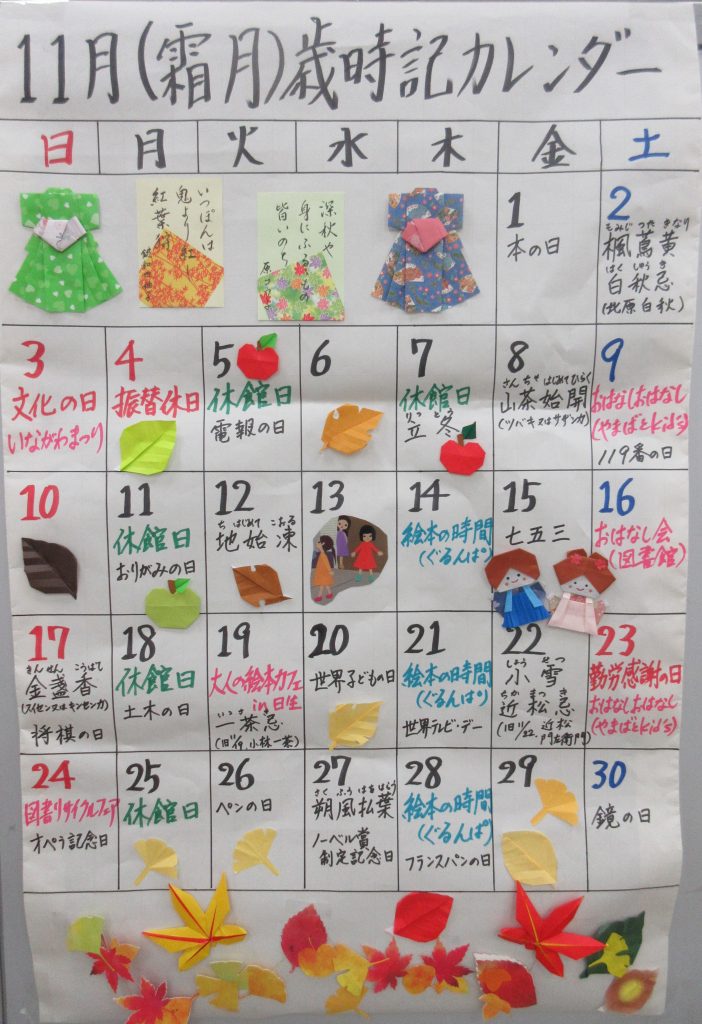 11月(霜月)歳時記カレンダー
日 月 火 水 木 金 土
いっぽんは
鬼より紅し
紅葉狩
深秋や
身にふるゝもの
皆いのち
原コウ子
1
本の日
2
もみじ つた きなり
楓蔦黄
はく しゅう き
白秋忌
(北原白秋)
3
文化の日
いながわまつり
4
振替休日
5
休館日
電報の日
6
7
休館日
りっ とう
立冬
8
さん ちゃ はじめてひらく
山茶始開
(ツバキスはサザンカ)
9
おはなしおはなし
(やまばとKid's)
119番の日
10
11
休館日
おりがみの日
12
ち はじめて こおる
地始凍
13
14
絵本の時間
(ぐるんぱ)
15
七五三
16
おはなし会
(図書館)
17
きんせん こうばし
金盞香
(スイセンスはキンセンカ)
将棋の日
18
休館日
土木の日
19
大人の絵本カフェ
in 日生
いっさ き
一茶忌
(旧11/19,小林一茶)
20
世界子どもの日
21
絵本の時間
(ぐるんぱ)
世界テレビ・デー
22
しょう せつ
小雪
ちか まつ き
近松忌
(旧11/22.近松
門左衛門)
23
勤労感謝の日
おはなしおはなし
(やまばとKid's)
24
図書リサイクルフェア
オペラ記念日
25
休館日
26
ペンの日
27
さく ふう はをはらう
朔風払葉
ノーベル賞
制定記念日
28
絵本の時間
(ぐるんぱ)
フランスパンの日
29
30
鏡の日